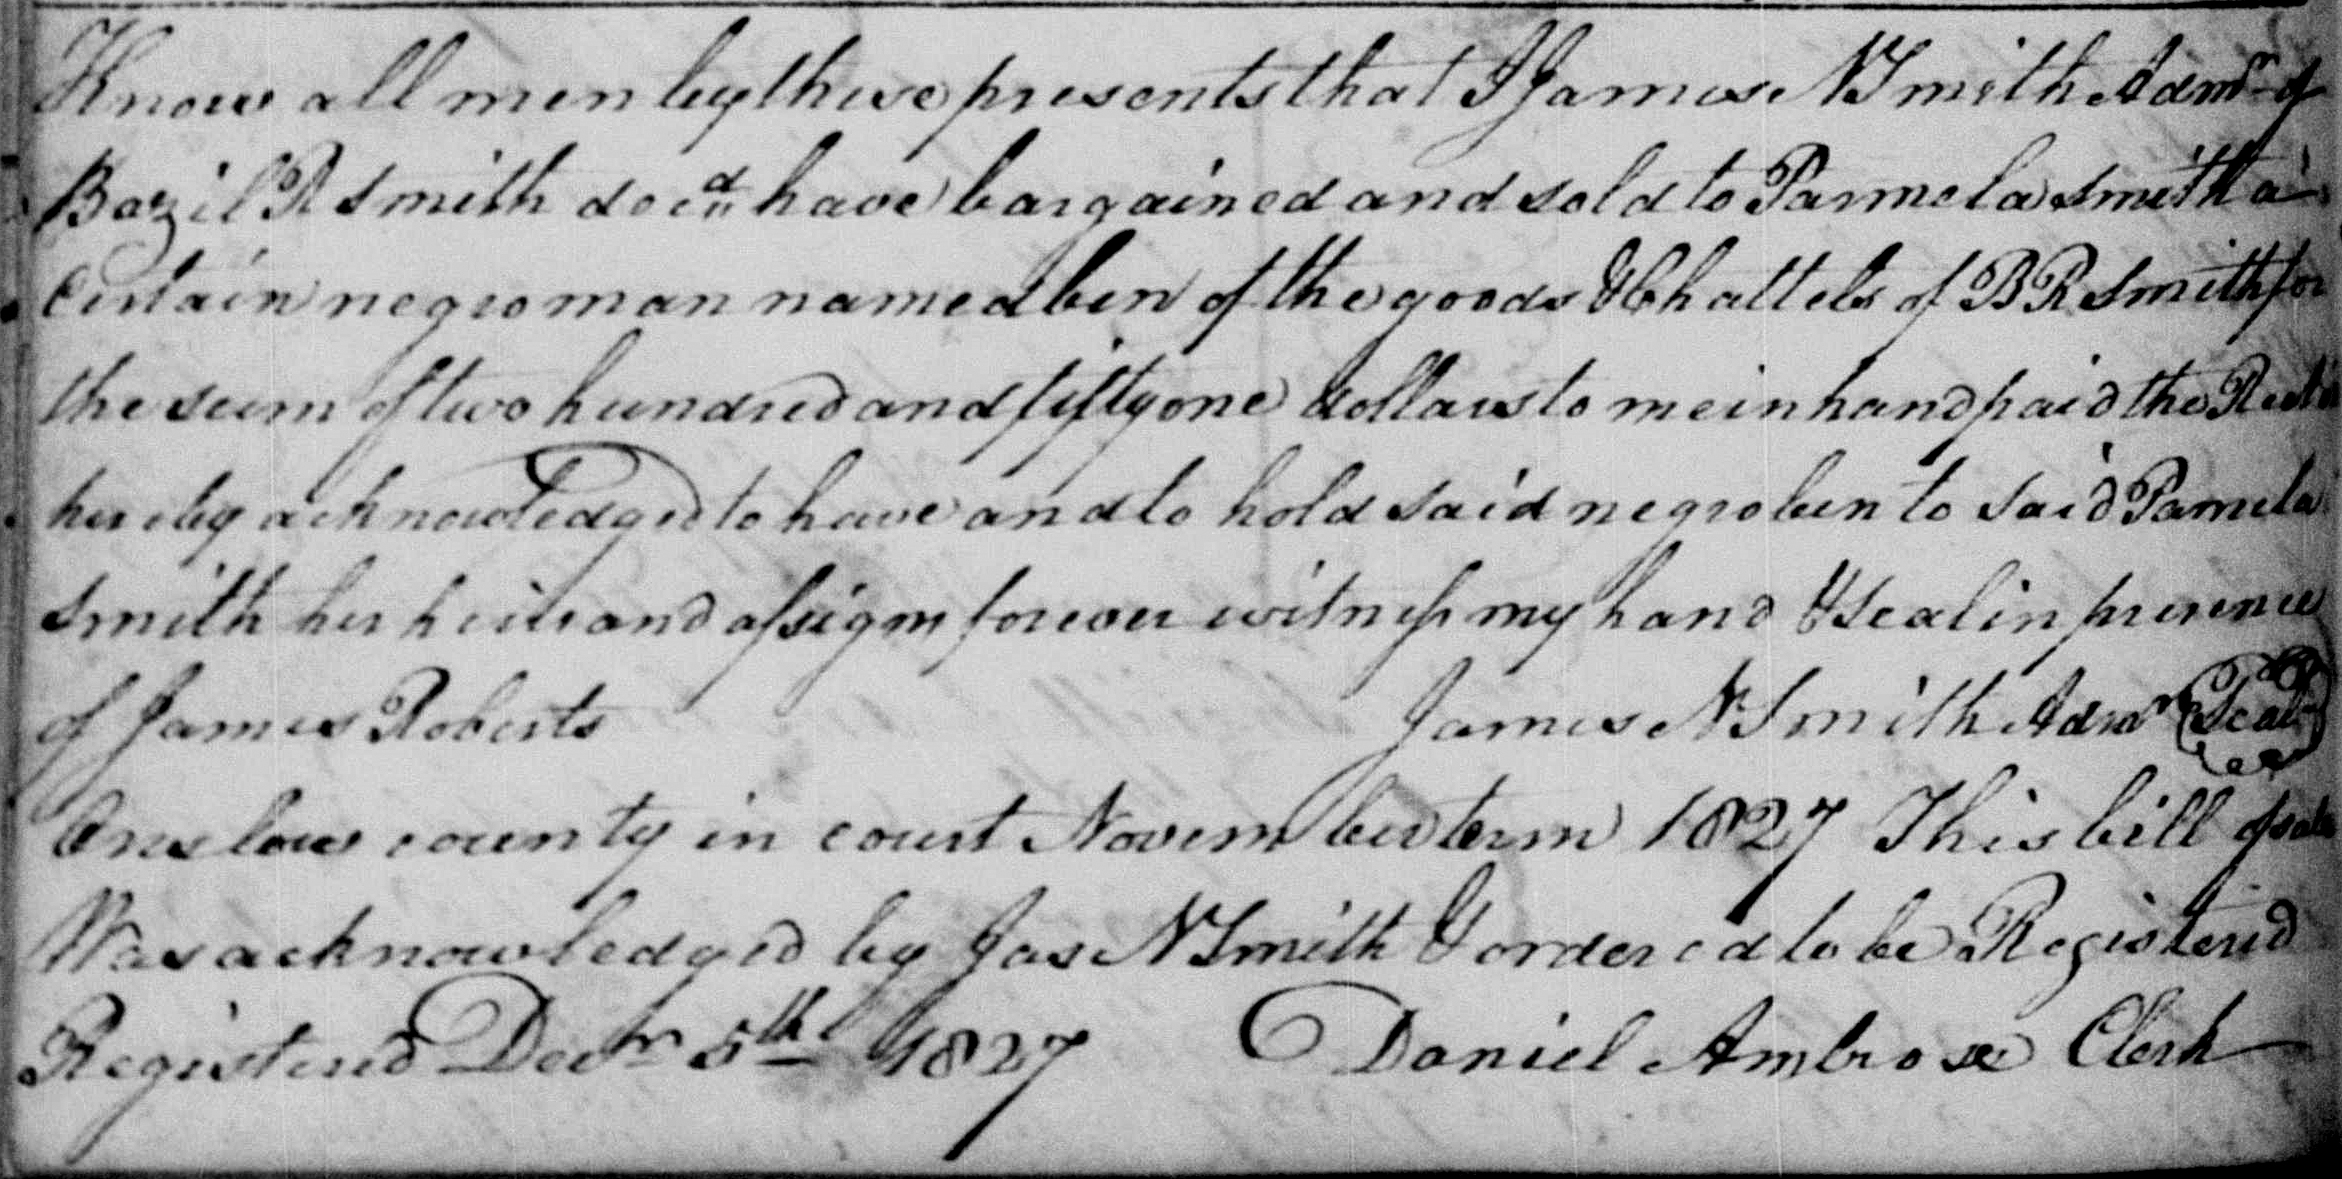 Know all men by these presents that I James N Smith Admr of
Bazil R Smith decd have bargained and sold to Parmela Smith a
Certain negro man named ben of the goods & Chattels of B R Smith for
the sum of two hundred and fifty one dollars to me in hand paid the Rect
hereby acknowledged to have and to hold said negro ben to said Pamela
Smith her heirs and assigns forever witness my hand & seal in presence
of James Roberts James N Smith Admr Seal
Onslow county in court November term 1827 This bill of sale
Was acknowledged by Jas N Smith & ordered to be Registered
Registered Decr 5th 1827 Daniel Ambrose Clerk